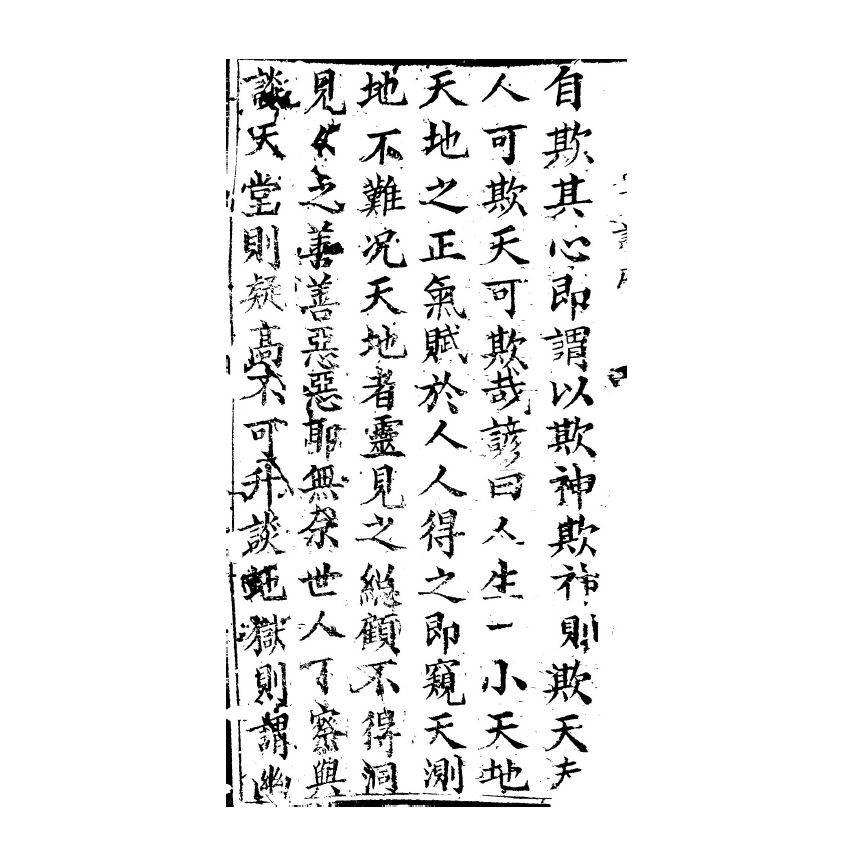 自欺其心即謂以欺神欺神則欺天夫
人可欺天可欺哉諺曰人生一小天地
天地之正氣賦於人人得之即窺天測
地不難况天地者靈見之緫顧不得洞
見人之善善惡惡耶無奈世人不察與
談天堂則疑高不可升談地獄則謂幽